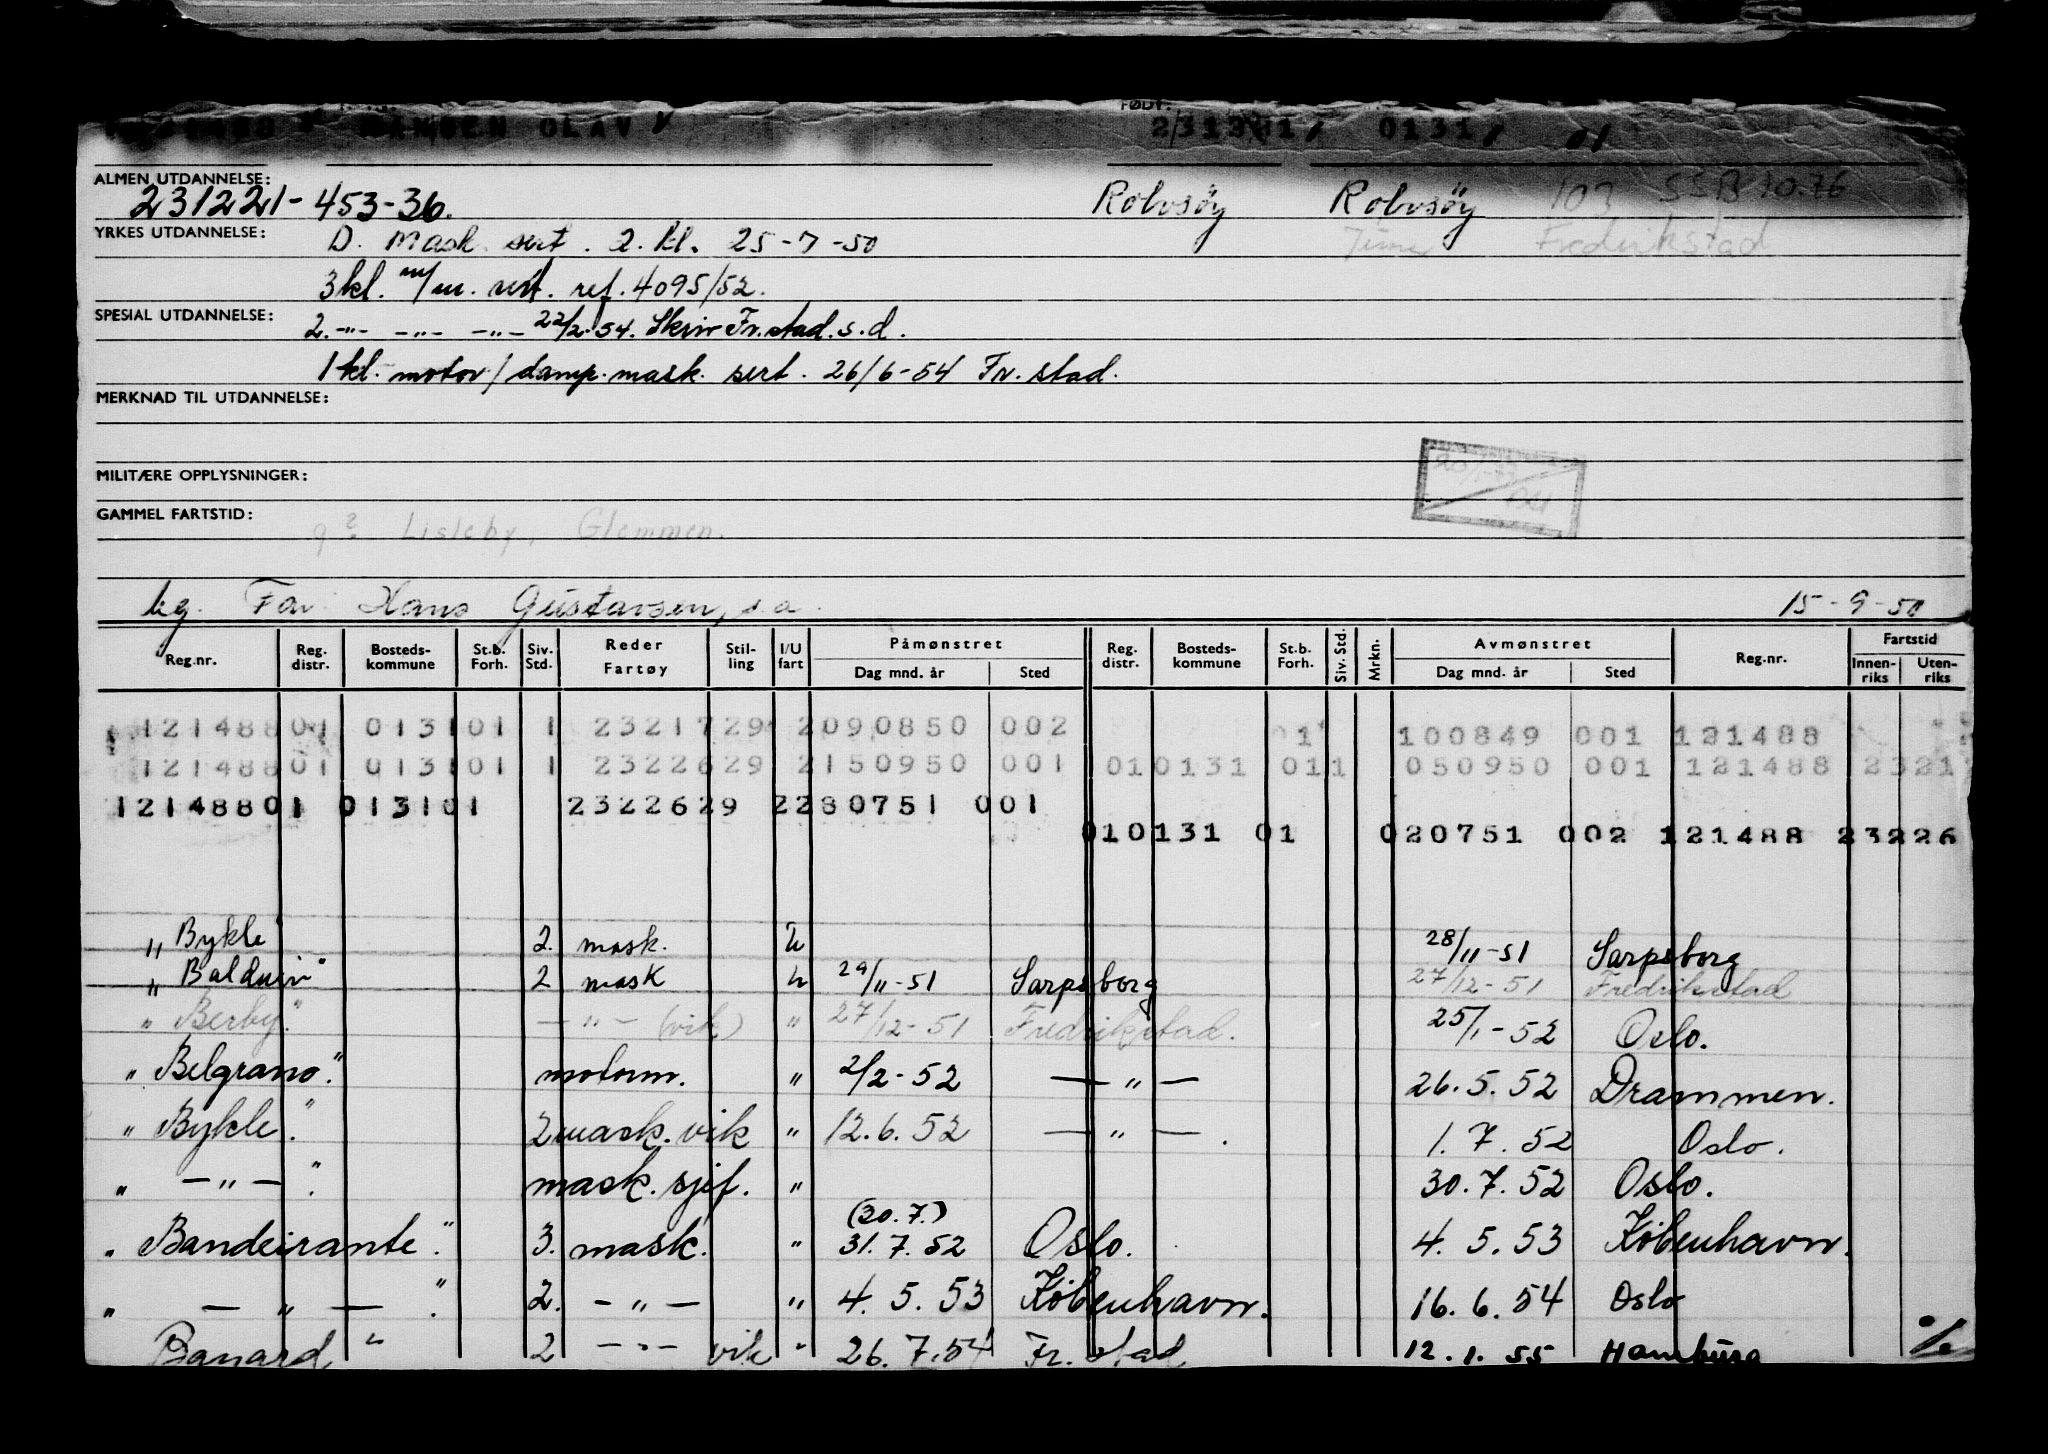 HANSEN OLAV
FØDT:
0131
01
ALMEN UTDANNELSE:
231221-453-36.
Rolvsöy Rolvsöy 103 SSB 10.76
YRKES UTDANNELSE:
D. Mask. sert. 2. kl. 25-7-50
Fredrikstad
3 kl. m/m. sert. ref. 4095/52.
SPESIAL UTDANNELSE:
2. -"- -"- -"- 22/2-54. Skriv Fr.stad. s.d.
1 kl. motor/damp. mask. sert. 26/6-54 Fr. stad.
MERKNAD TIL UTDANNELSE:
MILITÆRE OPPLYSNINGER:
GAMMEL FARTSTID:
g? Lisleby, Glemmen.
kg. Far Hans Gustavsen, s.a. 15-9-50
Reg.nr. Reg. distr. Bosteds-kommune St.b. Forh. Siv. Std. Reder Fartøy Stil-ling I/U fart Påmønstret Dag mnd. år Sted Reg. distr. Bosteds-kommune St.b. Forh. Siv. Std. Mrkn. Avmønstret Dag mnd. år Sted Reg.nr. Fartstid Innen-riks Uten-riks
01 100849 001 121488
12148801 013101 1 2321729 2090850 002
12148801 013101 1 2322629 2150950 001 010131 011 050950 001 121488 2321
12148801 013101 2322629 2280751 001
010131 01 020751 002 121488 23226
" Bykle" 2. mask. U 28/11-51 Sarpsborg
" Balduin" 2 mask U 29/11-51 Sarpsborg 27/12-51 Fredrikstad
" Berby". -"- (vik) " 27/12-51 Fredrikstad. 25/1-52 Oslo.
" Belgrano." motorm. " 2/2-52 -"- 26.5.52 Drammen.
" Bykle." 2 mask. vik " 12.6.52 -"-. 1.7.52 Oslo.
" -"-." mask. sjef. " 30.7.52 Oslo.
" Bandeirante." 3. mask. " (30.7.) 31.7.52 Oslo. 4.5.53 København.
" -"-." 2. -"- " 4.5.53 København. 16.6.54 Oslo
Banard " 2 -"- vik " 26.7.54 Fr. stad 12.1.55 Hamburg